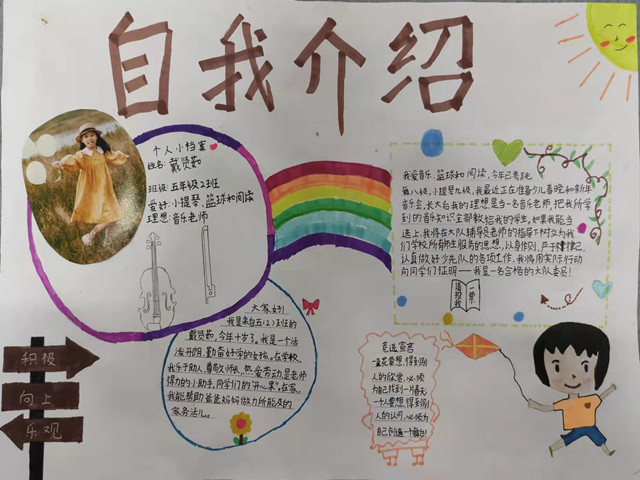 自我介绍
个人小档案
姓名:戴贤茹
班级:五年级2班
爱好:小提琴、篮球和阅读
理想:音乐老师
我爱音乐、篮球和阅读,今年已考钢
琴八级,小提琴九级,我最近正在准备少儿春晚和新年
音乐会,长大后我的理想是当一名音乐老师,把我所学
到的音乐知识全部教给我的学生。如果我能当
选上,我将在大队辅导员老师的指导下树立为我
们学校所有师生服务的思想,以身作则,严于律己,
认真做好少先队的各项工作,我将用实际行动
向同学们证明——我是一名合格的大队委员!
请投我
一票
大家好!
我是来自五(2)班的
戴贤茹,今年十岁了。我是一个活
泼开朗,勤奋好学的女孩。在学校,
我乐于助人,尊敬师长,热爱劳动,是老师
得力的小助手,同学们的“开心果”。在家,
我能帮助爸爸妈妈做力所能及的
家务活儿。
竞选宣言
一朵花要想得到别
人的欣赏,必须
为自己找到一片春天
一个人要想得到别
人的认可,必须为
自己创造一个舞台!
积极
向上
乐观